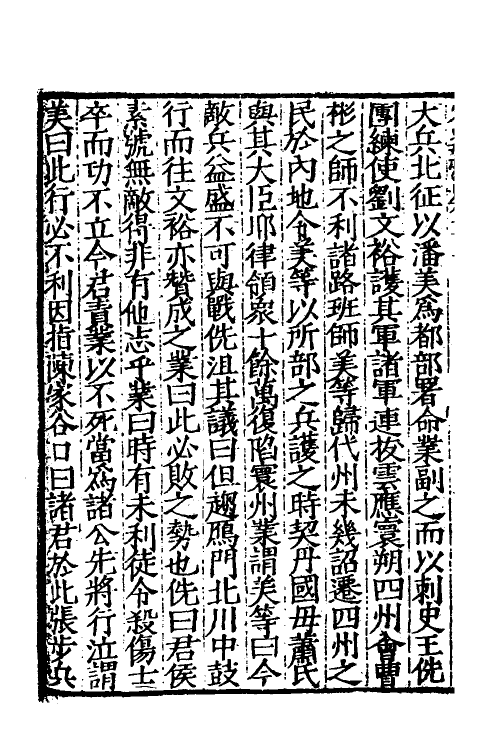 大兵北征以潘美爲都部署命業副之而以刺史王侁
團練使劉文裕護其軍諸軍連拔雲應寰朔四州會曹
彬之師不利諸路班師美等歸代州未幾詔遷四州之
民於內地令美等以所部之兵護之時契丹國母蕭氏
與其大臣耶律領衆十餘萬復陷寰州業謂美等曰今
敵兵益盛不可與戰侁沮其議曰但趨鴈門北川中鼓
行而往文裕亦贊成之業曰此必敗之勢也侁曰君侯
素號無敵得非有他志乎業曰時有未利徒令殺傷士
卒而功不立今君責業以不死當爲諸公先將行泣謂
美曰此行必不利因指陳家谷口曰諸君於此張步兵